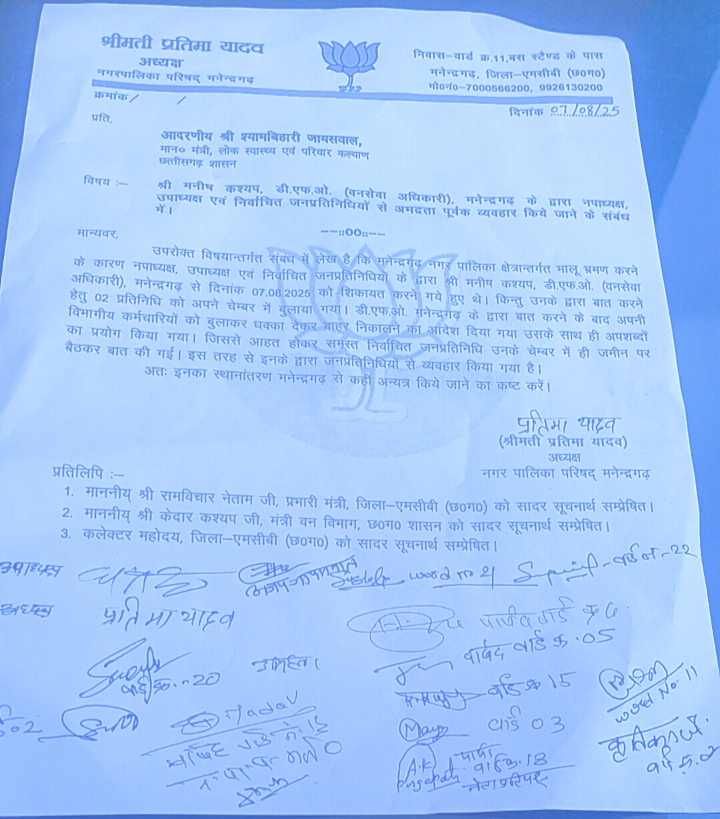 श्रीमती प्रतिमा यादव
अध्यक्ष
नगरपालिका परिषद् मनेन्द्रगढ़
निवास-वार्ड क्र.11,बस स्टैण्ड के पास
मनेन्द्रगढ़, जिला-एमसीबी (छ0ग0)
मो0नं0-7000566200, 9926130200
क्रमांक/ /
दिनांक 07/08/25
प्रति,
आदरणीय श्री श्यामबिहारी जायसवाल,
मान० मंत्री, लोक स्वास्थ्य एवं परिवार कल्याण
छत्तीसगढ़ शासन
विषय :— श्री मनीष कश्यप, डी.एफ.ओ. (वनसेवा अधिकारी), मनेन्द्रगढ़ के द्वारा नपाध्यक्ष,
उपाध्यक्ष एवं निर्वाचित जनप्रतिनिधियों से अभद्रता पूर्वक व्यवहार किये जाने के संबंध
में।
––::00::––
मान्यवर,
उपरोक्त विषयान्तर्गत संबंध में लेख है कि मनेन्द्रगढ़ नगर पालिका क्षेत्रान्तर्गत भालू भ्रमण करने
के कारण नपाध्यक्ष, उपाध्यक्ष एवं निर्वाचित जनप्रतिनिधियों के द्वारा श्री मनीष कश्यप, डी.एफ.ओ. (वनसेवा
अधिकारी), मनेन्द्रगढ़ से दिनांक 07.08.2025 को शिकायत करने गये हुए थे। किन्तु उनके द्वारा बात करने
हेतु 02 प्रतिनिधि को अपने चेम्बर में बुलाया गया। डी.एफ.ओ. मनेन्द्रगढ़ के द्वारा बात करने के बाद अपनी
विभागीय कर्मचारियों को बुलाकर धक्का देकर बाहर निकालने का आदेश दिया गया उसके साथ ही अपशब्दों
का प्रयोग किया गया। जिससे आहत होकर समस्त निर्वाचित जनप्रतिनिधि उनके चेम्बर में ही जमीन पर
बैठकर बात की गई। इस तरह से इनके द्वारा जनप्रतिनिधियों से व्यवहार किया गया है।
अतः इनका स्थानांतरण मनेन्द्रगढ़ से कहीं अन्यत्र किये जाने का कष्ट करें।
प्रतिमा यादव
(श्रीमती प्रतिमा यादव)
अध्यक्ष
नगर पालिका परिषद् मनेन्द्रगढ़
प्रतिलिपि :—
1. माननीय् श्री रामविचार नेताम जी, प्रभारी मंत्री, जिला-एमसीबी (छ0ग0) को सादर सूचनार्थ सम्प्रेषित।
2. माननीय् श्री केदार कश्यप जी, मंत्री वन विभाग, छ0ग0 शासन को सादर सूचनार्थ सम्प्रेषित।
3. कलेक्टर महोदय, जिला-एमसीबी (छ0ग0) को सादर सूचनार्थ सम्प्रेषित।
उपाध्यक्ष
वार्ड नं-22
अध्यक्ष प्रतिमा यादव
पार्षद वार्ड क्र 6
पार्षद वार्ड क्र. 05
वार्ड क्र.-20
वार्ड क्र 15
ward No. 11
Yadav
वार्ड 03
पार्षद
वार्ड क्र. 18